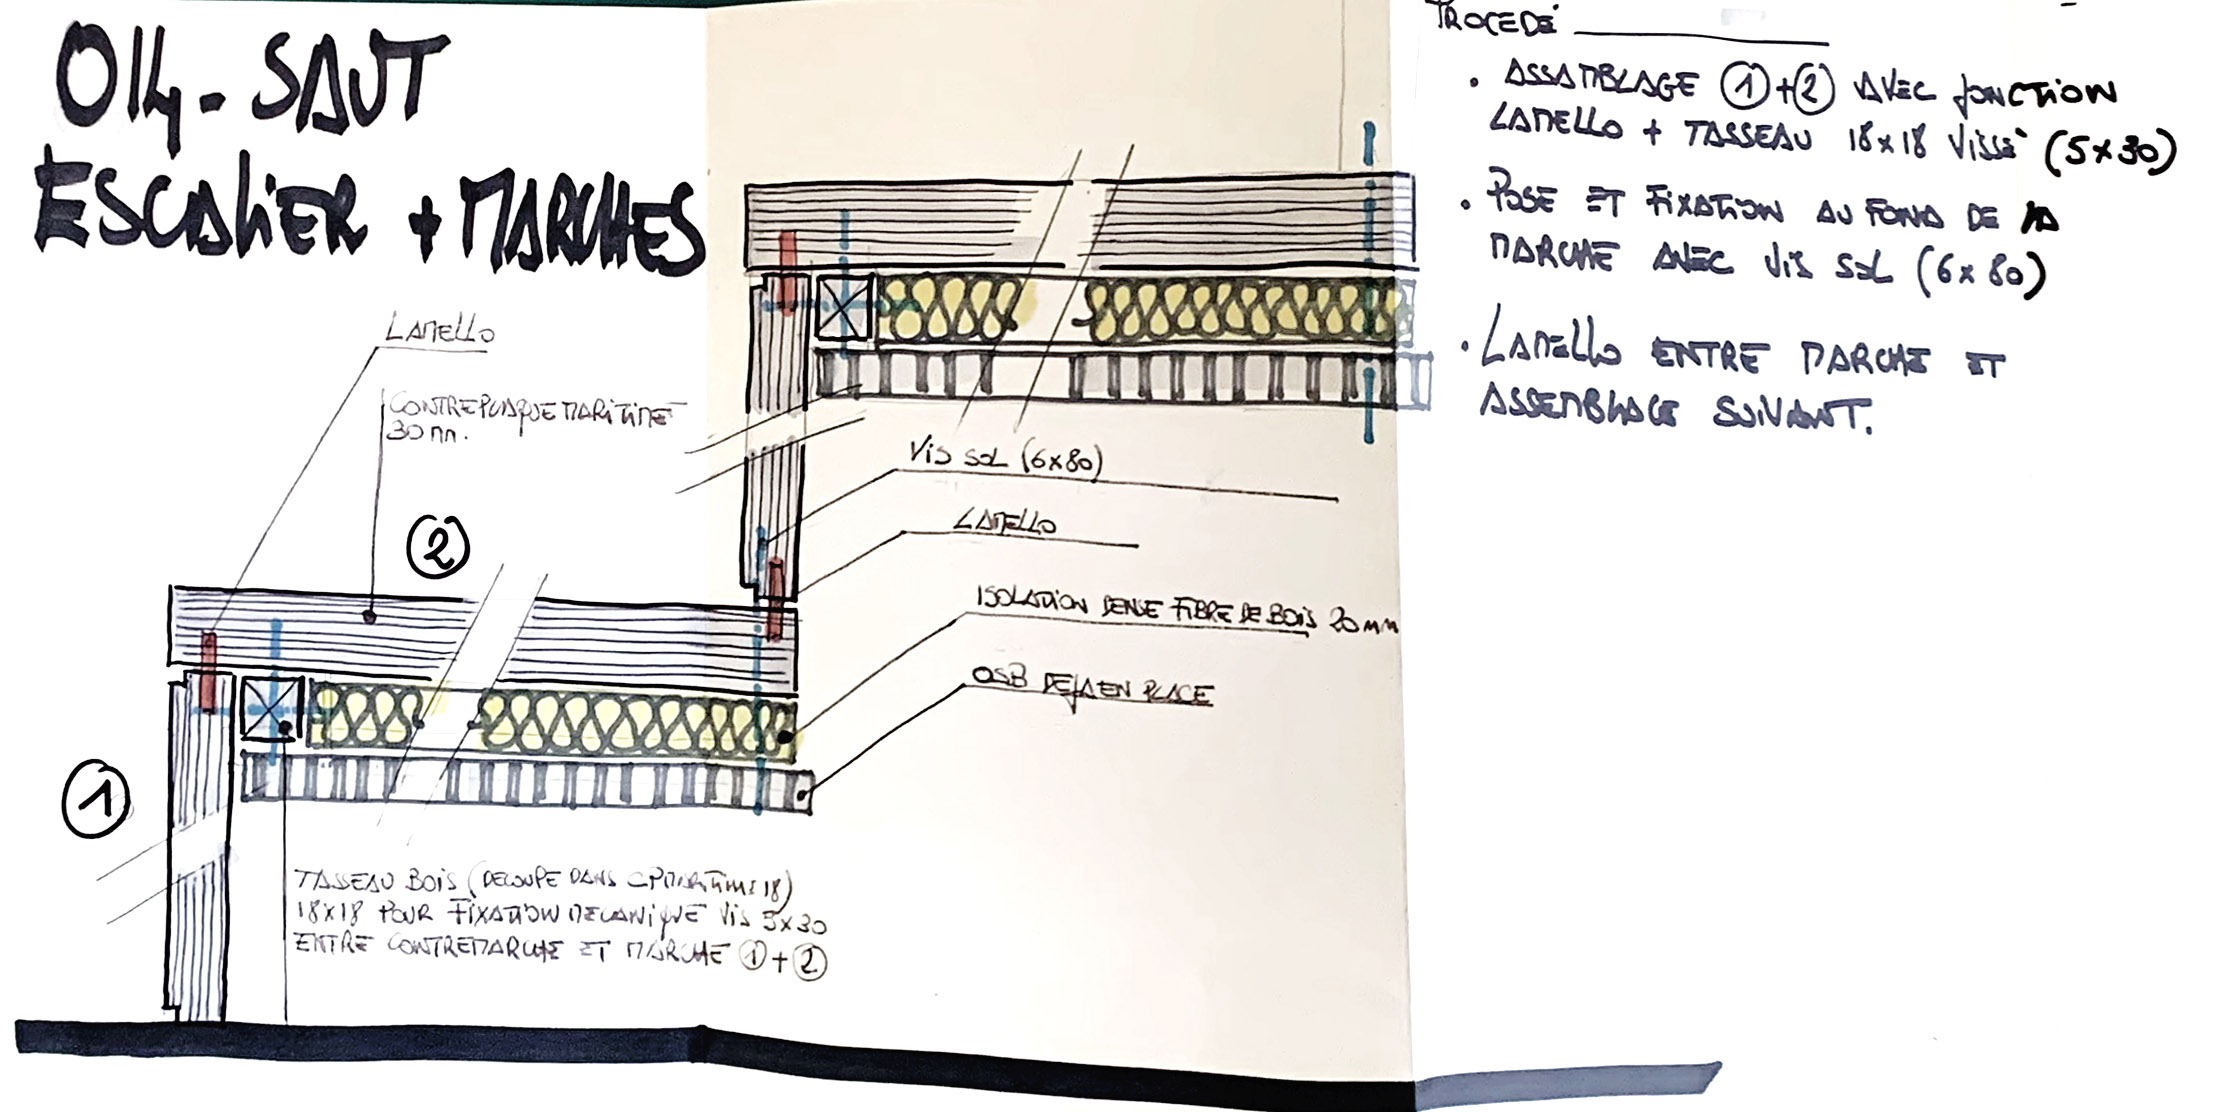 014-SAUT
ESCALIER + MARCHES
LAMELLO
CONTREPLAQUE MARITIME
30 mm.
2
1
TASSEAU BOIS (DECOUPE DANS CP MARITIME 18)
18x18 POUR FIXATION MECANIQUE VIS 5x30
ENTRE CONTREMARCHE ET MARCHE 1+2
VIS SOL (6x80)
LAMELLO
ISOLATION DENSE FIBRE DE BOIS 20mm
OSB DEJA EN PLACE
PROCEDÉ
• ASSAMBLAGE 1+2 AVEC JONCTION
LAMELLO + TASSEAU 18x18 VISSÉ (5x30)
• POSE ET FIXATION AU FOND DE LA
MARCHE AVEC VIS SOL (6x80)
• LAMELLO ENTRE MARCHE ET
ASSEMBLAGE SUIVANT.